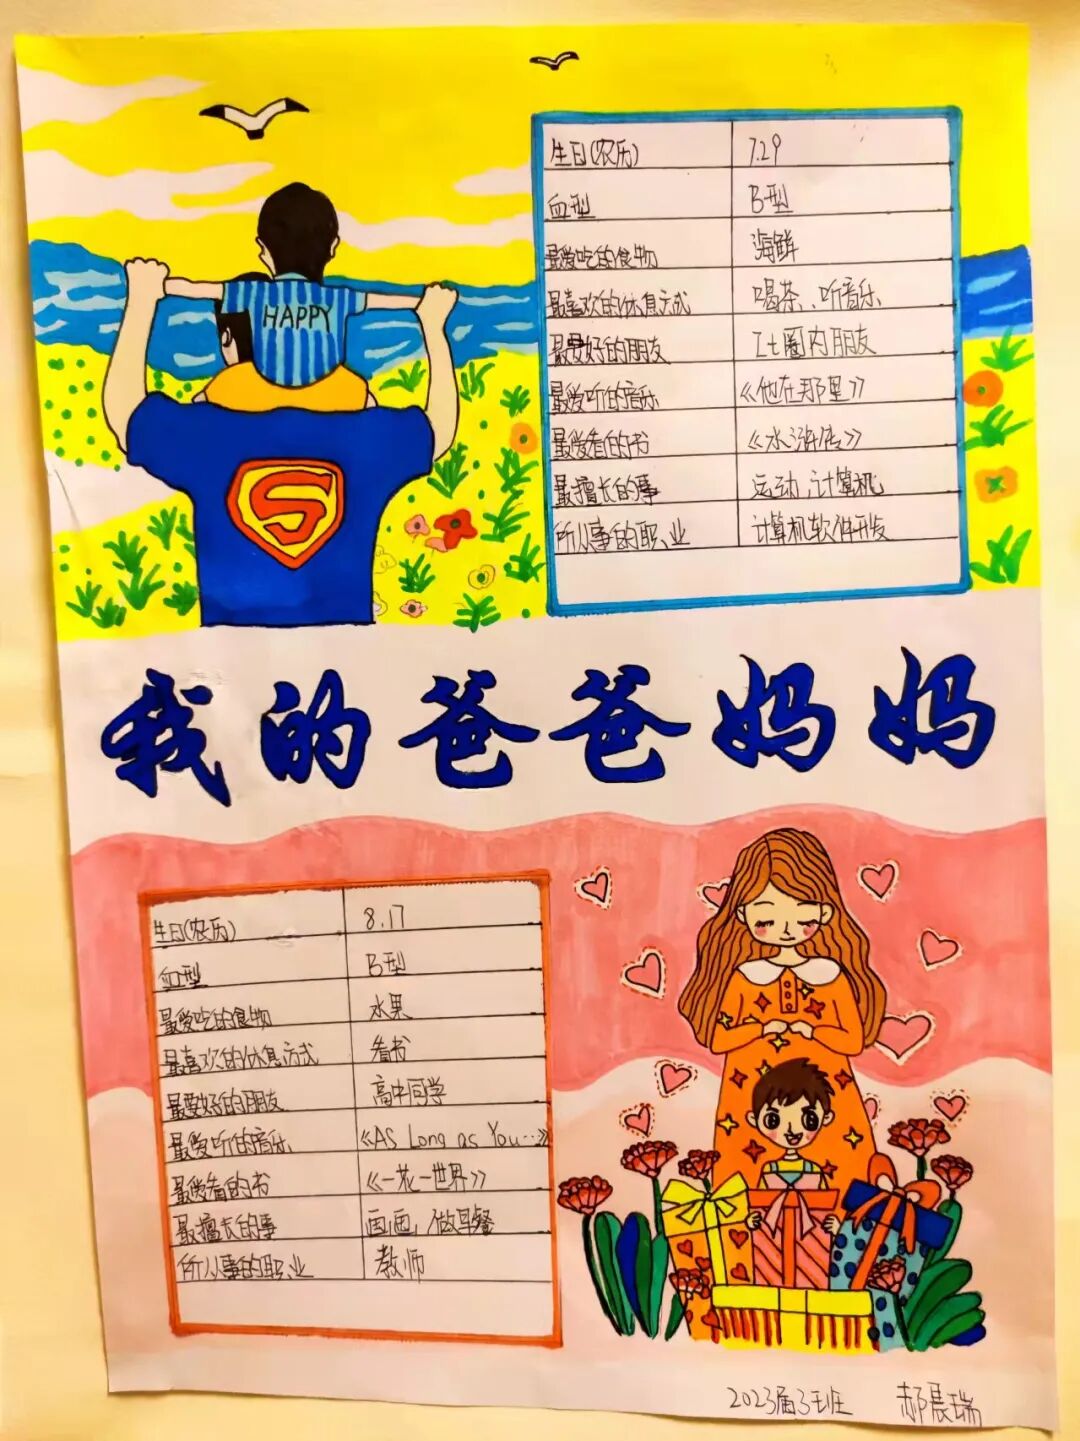 HAPPY
S
生日(农历) 7.29
血型 B型
最爱吃的食物 海鲜
最喜欢的休息方式 喝茶、听音乐
最要好的朋友 It圈内朋友
最爱听的音乐 《他在那里》
最爱看的书 《水浒传》
最擅长的事 运动、计算机
所从事的职业 计算机软件开发
我的爸爸妈妈
生日(农历) 8.17
血型 B型
最爱吃的食物 水果
最喜欢的休息方式 看书
最要好的朋友 高中同学
最爱听的音乐 《As Long as You…》
最爱看的书 《一花一世界》
最擅长的事 画画，做早餐
所从事的职业 教师
2023届3班 郝晨瑞